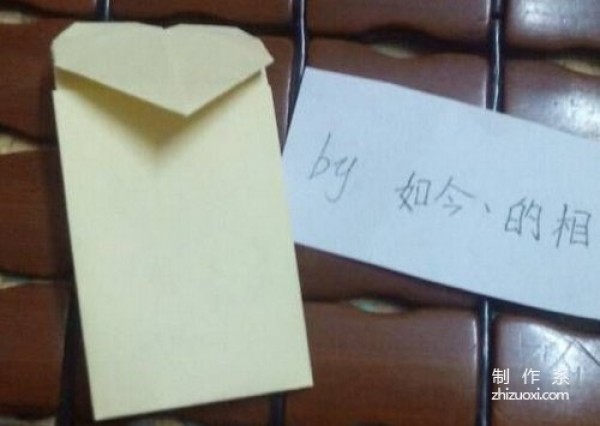 by 如今、的相
制作系
zhizuoxi.com